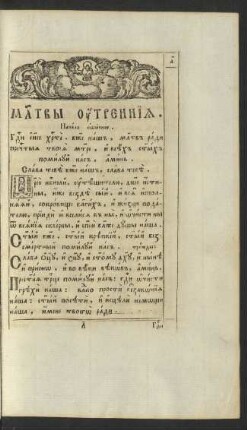 а҃
МЛ҃ТВЫ ОУ҆ТРЕННІѦ.
Г҃ди І҆с҃е Хр҃те, Бж҃е нашъ, мл҃твъ ради
пр҃чтыѧ твоеѧ мт҃ре, и҆ всѣхъ ст҃ыхъ
помилуй насъ, а҆минь.
Слава тебѣ бж҃е нашъ, слава тебѣ.
Цр҃ю нб҃сный, оу҆тѣшителю, дш҃е и҆сти
ны, и҆же вездѣ сый, и҆ всѧ и҆спол
нѧѧй, сокровище благихъ, и҆ жизни пода
телю, прїиди и҆ вселисѧ въ ны, и҆ ѡ҆чисти ны
ѿ всѧкїѧ скверны, и҆ сп҃си блаже дꙋшы нашѧ.
Ст҃ый бж҃е, ст҃ый крѣпкїй, ст҃ый без
смертный помилꙋй насъ. трижды
Слава ѻ҆ц҃ꙋ, и҆ сн҃ꙋ, и҆ ст҃омꙋ дх҃ꙋ, и҆ нн҃ѣ
и҆ приснѡ, и҆ во вѣки вѣкѡвъ, а҆минь.
Прест҃аѧ трⷪ҇це помилꙋй насъ: гд҃и ѡ҆чисти
грѣхи нашѧ: влⷣко прости беззакѡнїѧ
наша: ст҃ый посѣти, и҆ и҆сцѣли немощи
нашѧ, и҆мене твоегѡ ради
а҃
Гд҃и